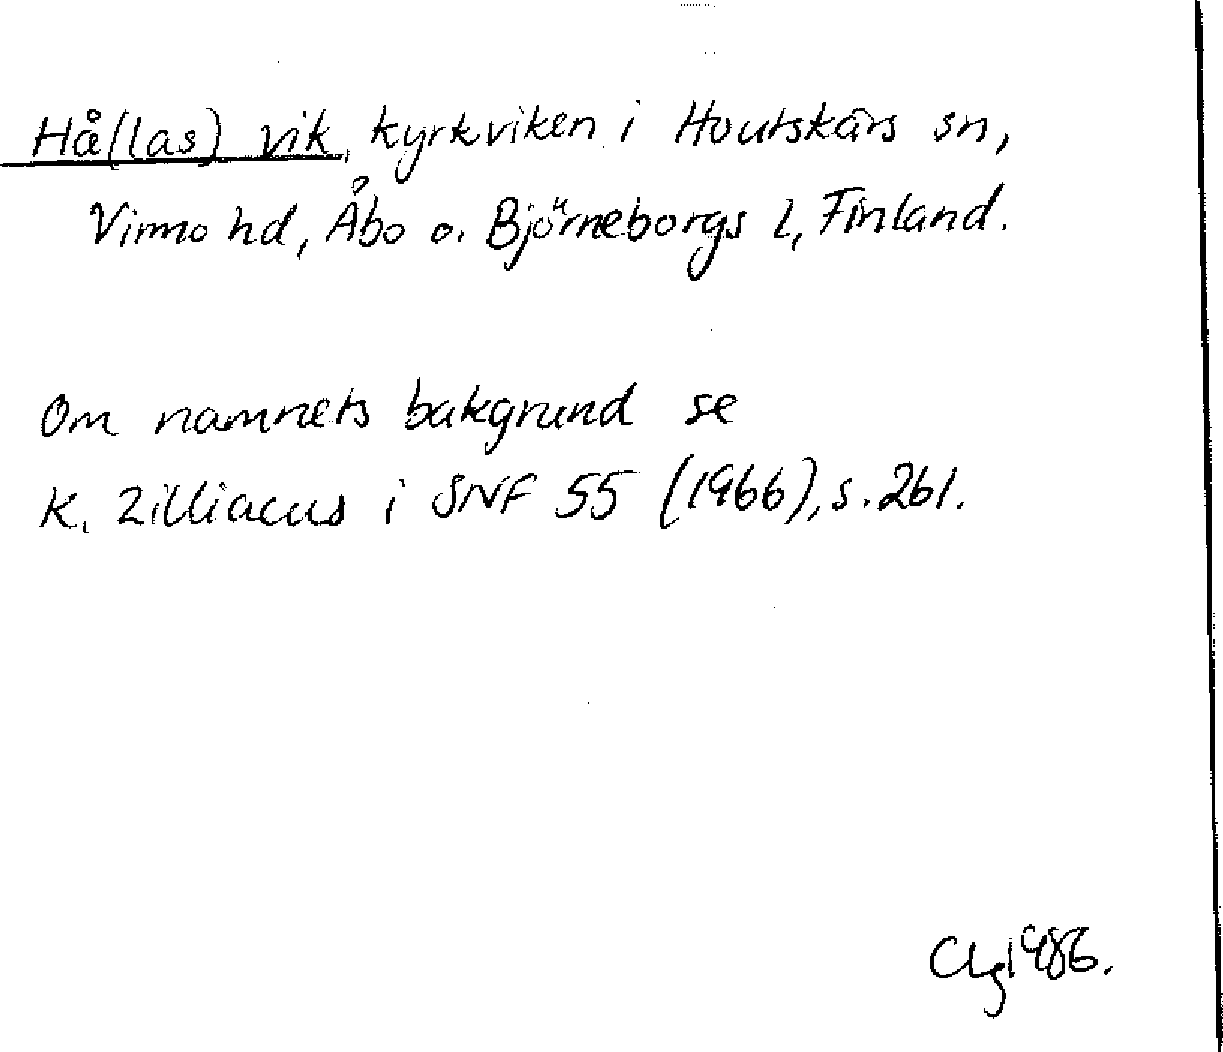 Hå(llas) vik, kyrkviken i Houtskärs sn,
Virmo hd, Åbo o. Björneborgs l, Finland.
Om namnets bakgrund se
K. Zilliacus i SNF 55 (1966), s. 261.
1986.